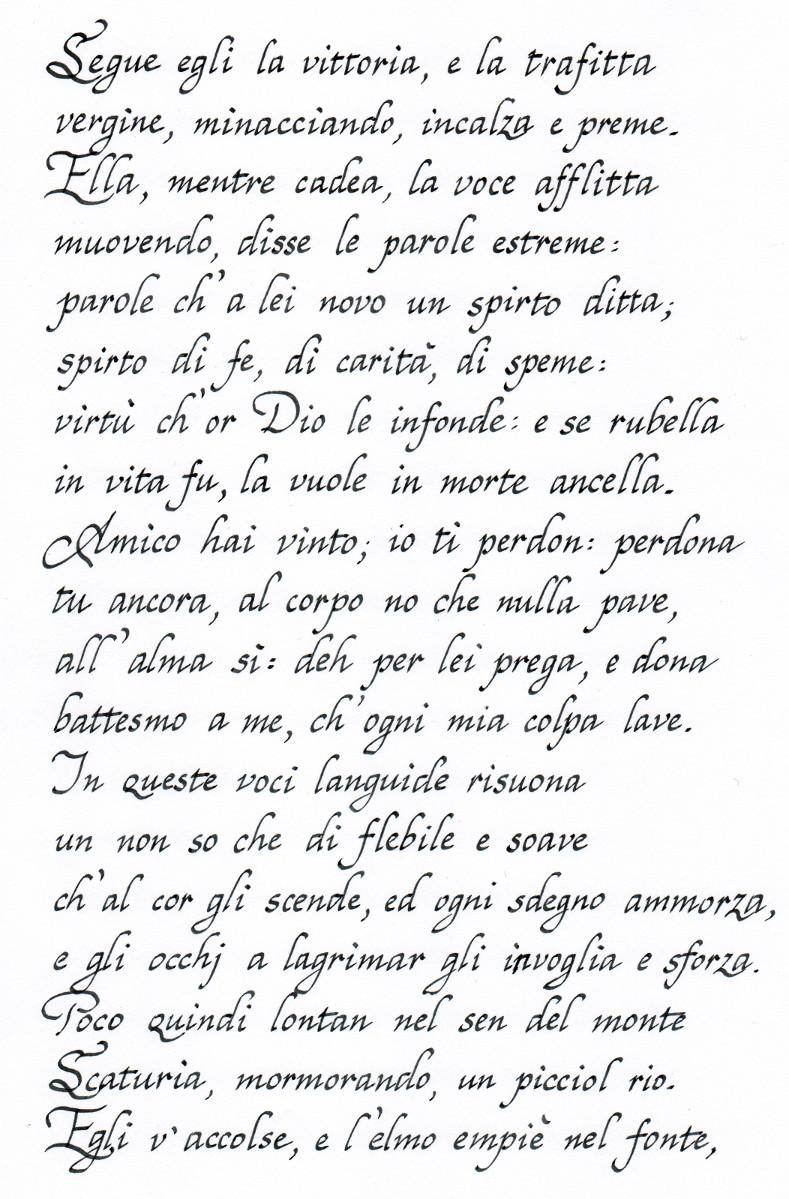 Segue egli la vittoria, e la trafitta
vergine, minacciando, incalza e preme.
Ella, mentre cadea, la voce afflitta
muovendo, disse le parole estreme:
parole ch'a lei novo un spirto ditta;
spirto di fe, di carità, di speme:
virtù ch'or Dio le infonde: e se rubella
in vita fu, la vuole in morte ancella.
Amico hai vinto; io ti perdon: perdona
tu ancora, al corpo no che nulla pave,
all'alma sì: deh per lei prega, e dona
battesmo a me, ch'ogni mia colpa lave.
In queste voci languide risuona
un non so che di flebile e soave
ch'al cor gli scende, ed ogni sdegno ammorza,
e gli occhj a lagrimar gli invoglia e sforza.
Poco quindi lontan nel sen del monte
Scaturia, mormorando, un picciol rio.
Egli v'accolse, e l'elmo empiè nel fonte,